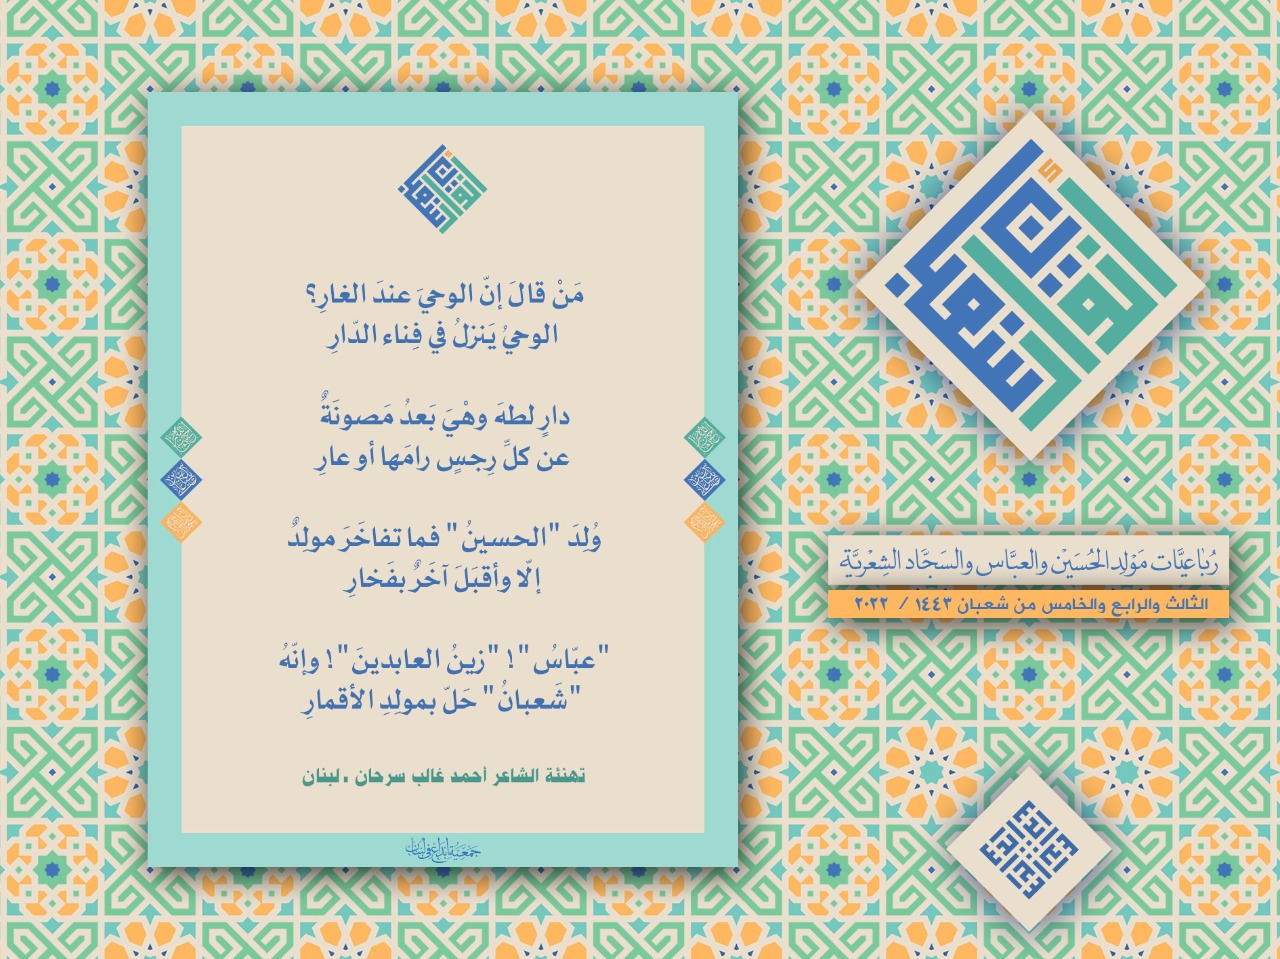 مَنْ قالَ إنّ الوحيَ عندَ الغارِ؟
الوحيُ يَنزلُ في فِناء الدّارِ
دارٍ لطهَ وهْيَ بَعدُ مَصونَةٌ
عن كلِّ رِجسٍ رامَها أو عارِ
وُلِدَ "الحسينُ" فما تفاخَرَ مولِدٌ
إلّا وأقبَلَ آخَرٌ بفَخارِ
"عبّاسُ"! "زينُ العابدينَ"! وإنّهُ
"شَعبانُ" حَلّ بمولِدِ الأقمارِ
تهنئة الشاعر أحمد غالب سرحان ـ لبنان
جمعية إبداع في لبنان
رُبَاعيَّات مَوْلِد الحُسَيْن والعبَّاس والسَجَّاد الشِعْريَّة
الثالث والرابع والخامس من شعبان ١٤٤٣ / ٢٠٢٢